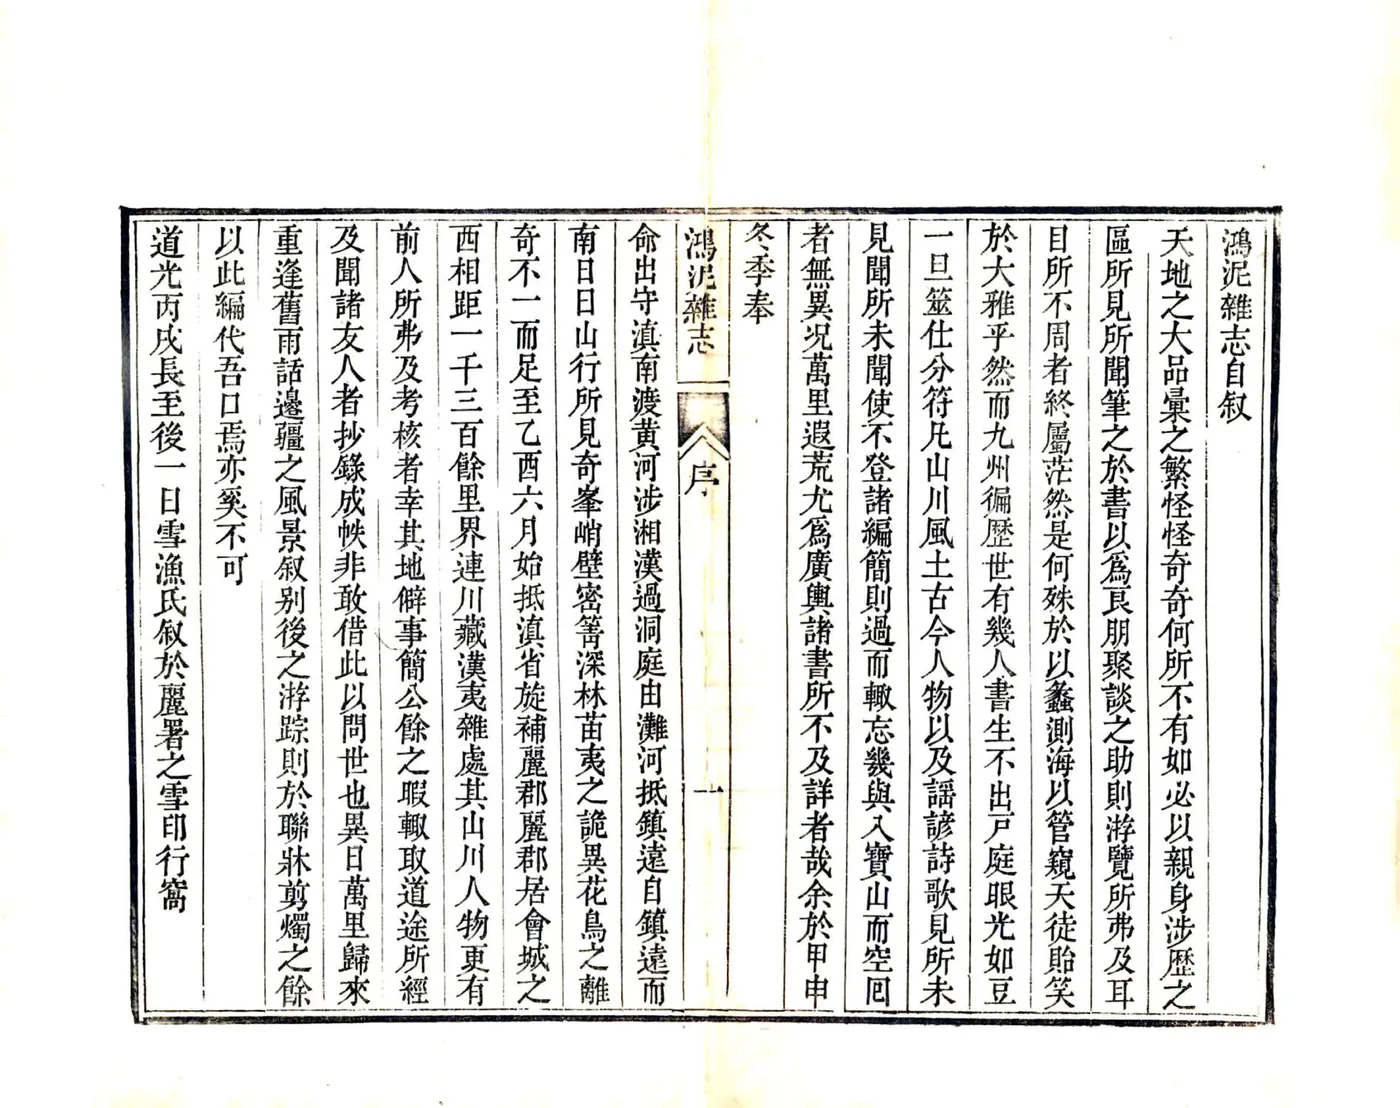 鴻泥雜志自叙
天地之大品彙之繁怪怪奇奇何所不有如必以親身涉歷之
區所見所聞筆之於書以爲良朋聚談之助則游覽所弗及耳
目所不周者終屬茫然是何殊於以蠡測海以管窺天徒貽笑
於大雅乎然而九州徧歷世有幾人書生不出戸庭眼光如豆
一旦筮仕分符凡山川風土古今人物以及謡諺詩歌見所未
見聞所未聞使不登諸編簡則過而輙忘幾與入寶山而空囘
者無異况萬里遐荒尤爲廣輿諸書所不及詳者哉余於甲申
冬季奉
鴻泥雜志
序
一
命出守滇南渡黄河涉湘漢過洞庭由灘河抵鎮遠自鎮遠而
南日日山行所見奇峯峭壁密箐深林苗夷之詭異花鳥之離
奇不一而足至乙酉六月始抵滇省旋補麗郡麗郡居會城之
西相距一千三百餘里界連川藏漢夷雜處其山川人物更有
前人所弗及考核者幸其地僻事簡公餘之暇輙取道途所經
及聞諸友人者抄錄成帙非敢借此以問世也異日萬里歸來
重逢舊雨話邊疆之風景叙别後之游踪則於聯牀剪燭之餘
以此編代吾口焉亦奚不可
道光丙戌長至後一日雪漁氏叙於麗署之雪印行窩